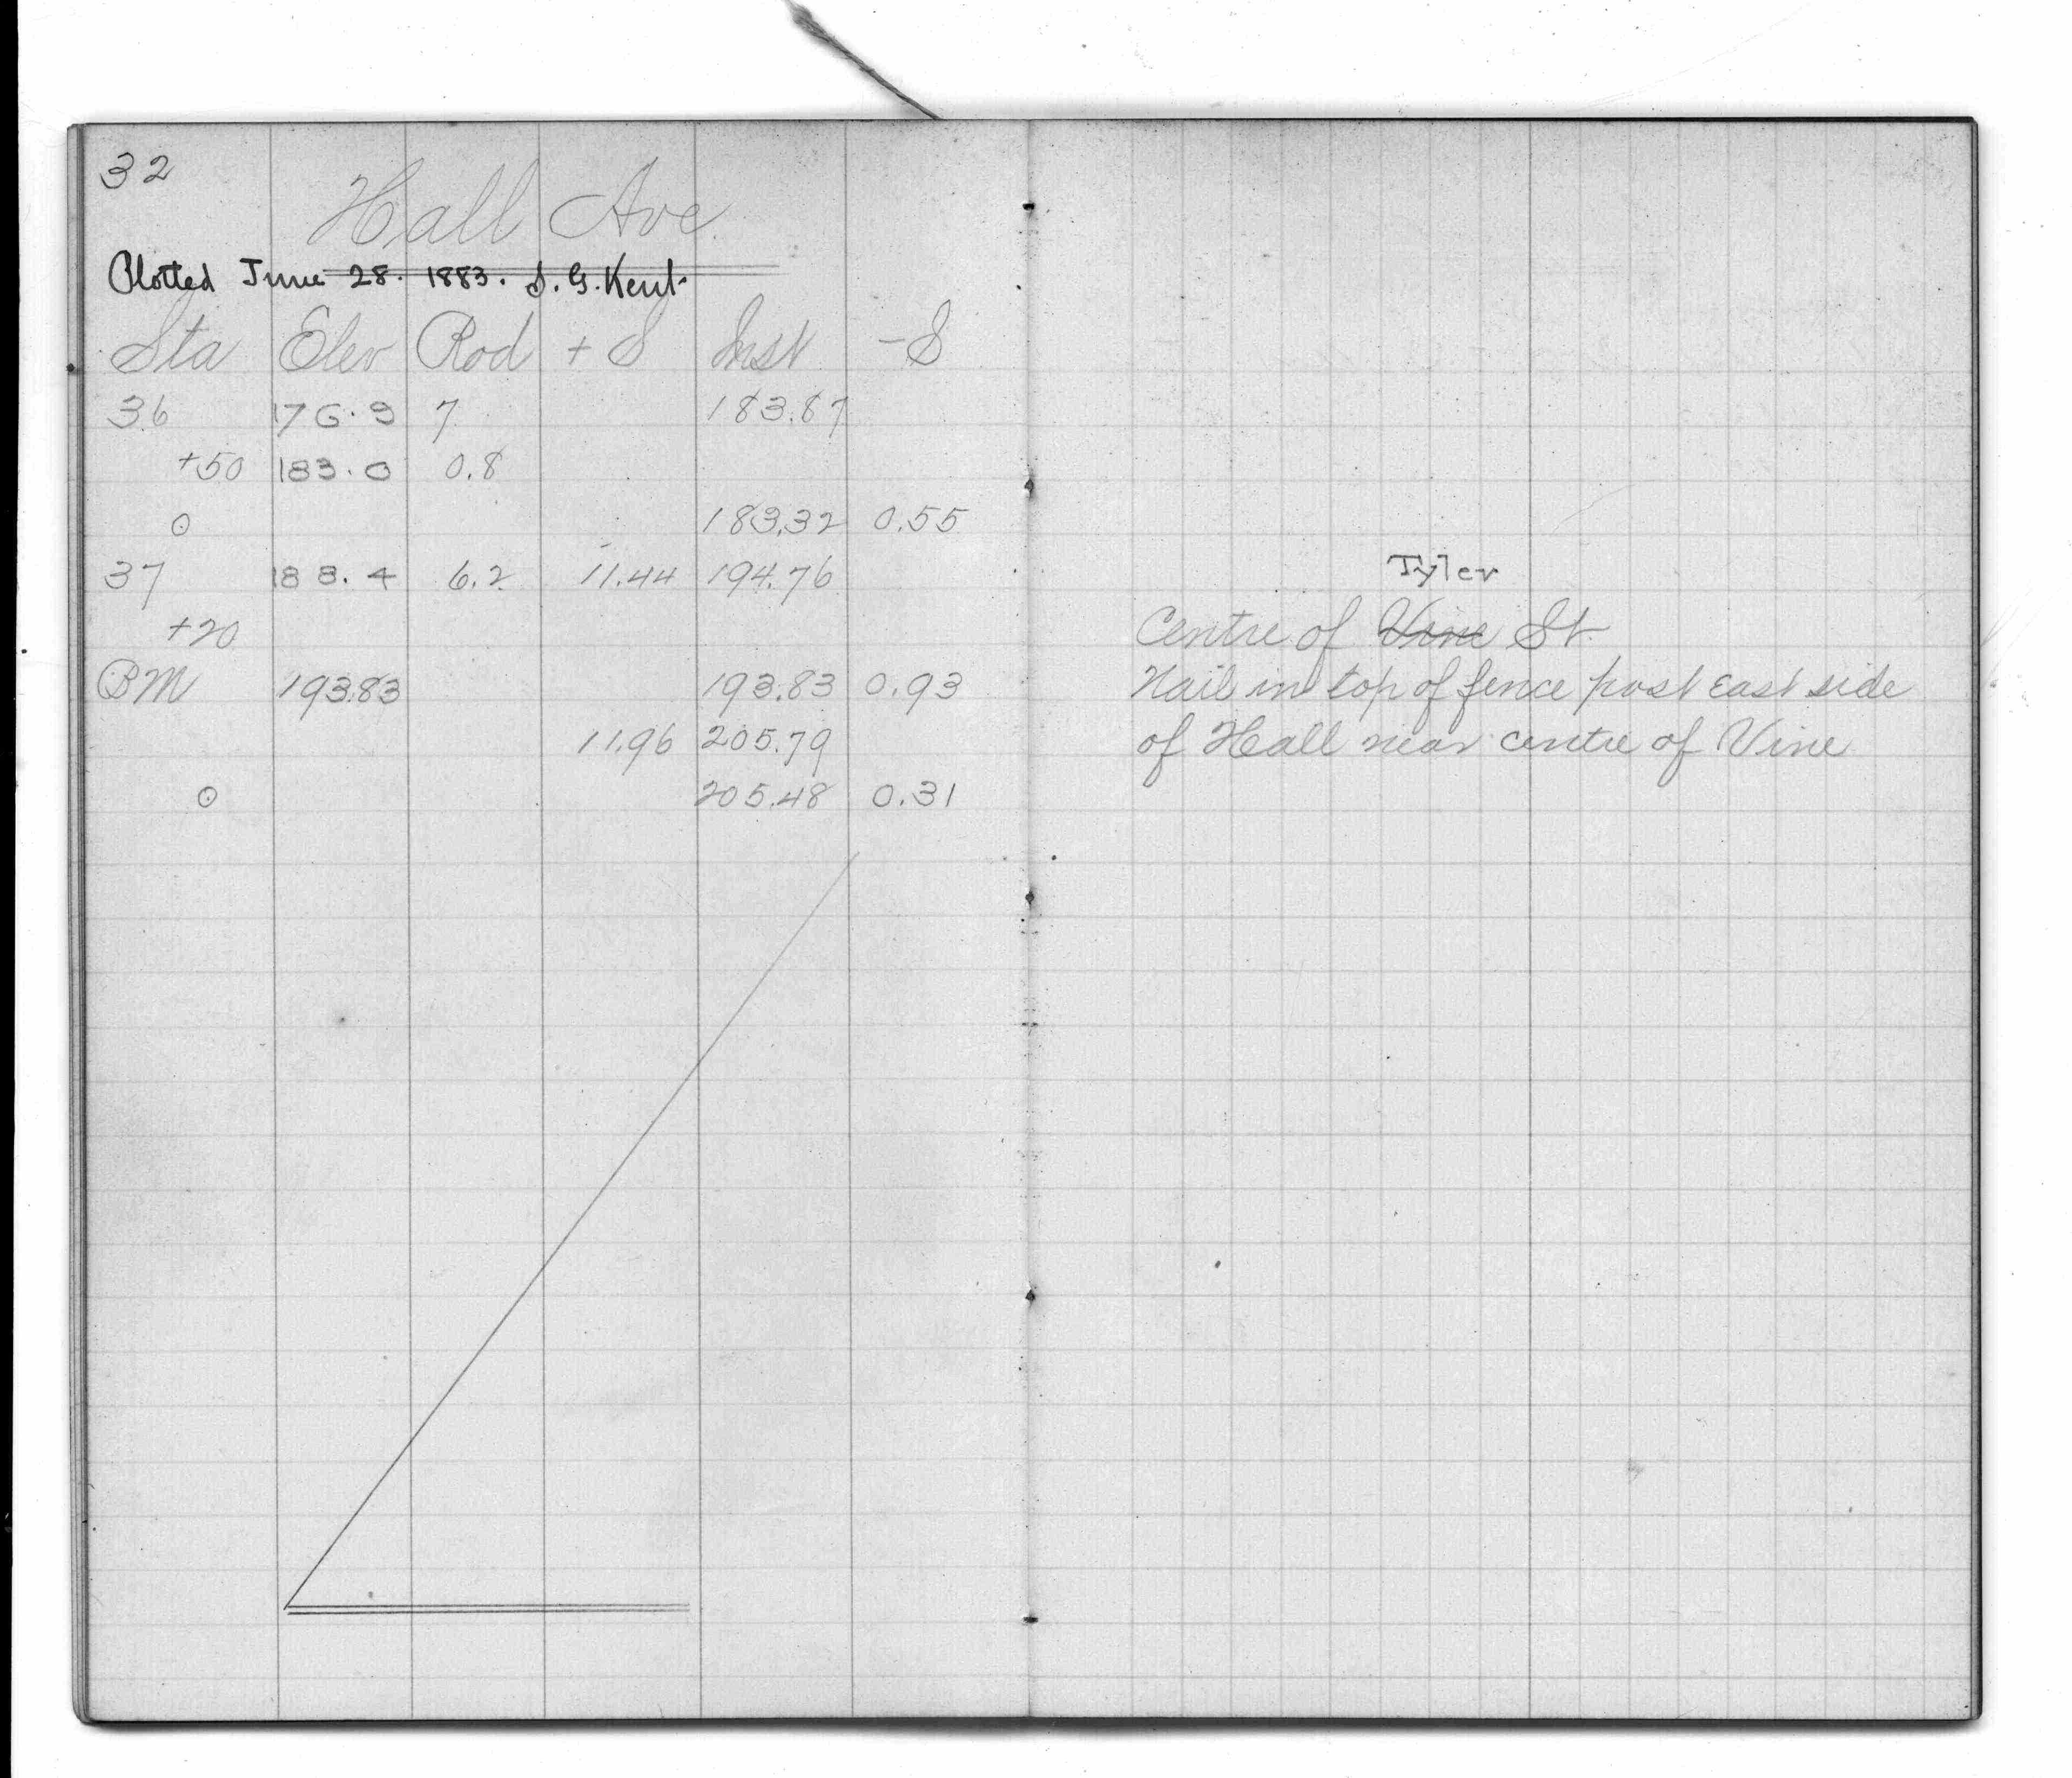 32
Hall Ave.
Plotted June 28. 1883. S. G. Kent.
Sta Elev Rod + S Inst - S
36 176.9 7 183.87
+50 183.0 0.8
0 183.32 0.55
37 188.4 6.2 11.44 194.76
+20
BM 193.83 193.83 0.93
11.96 205.79
0 205.48 0.31
Tyler
Centre of Vine St.
Nail in top of fence post East side
of Hall near centre of Vine